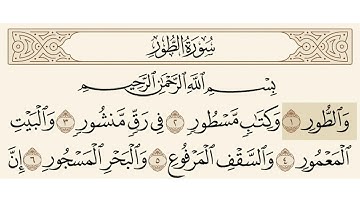 سُورَةُ الطُّورِ
بِسْمِ اللَّهِ الرَّحْمَٰنِ الرَّحِيمِ
وَالطُّورِ ١ وَكِتَابٍ مَّسْطُورٍ ٢ فِي رَقٍّ مَّنشُورٍ ٣ وَالْبَيْتِ
الْمَعْمُورِ ٤ وَالسَّقْفِ الْمَرْفُوعِ ٥ وَالْبَحْرِ الْمَسْجُورِ ٦ إِنَّ